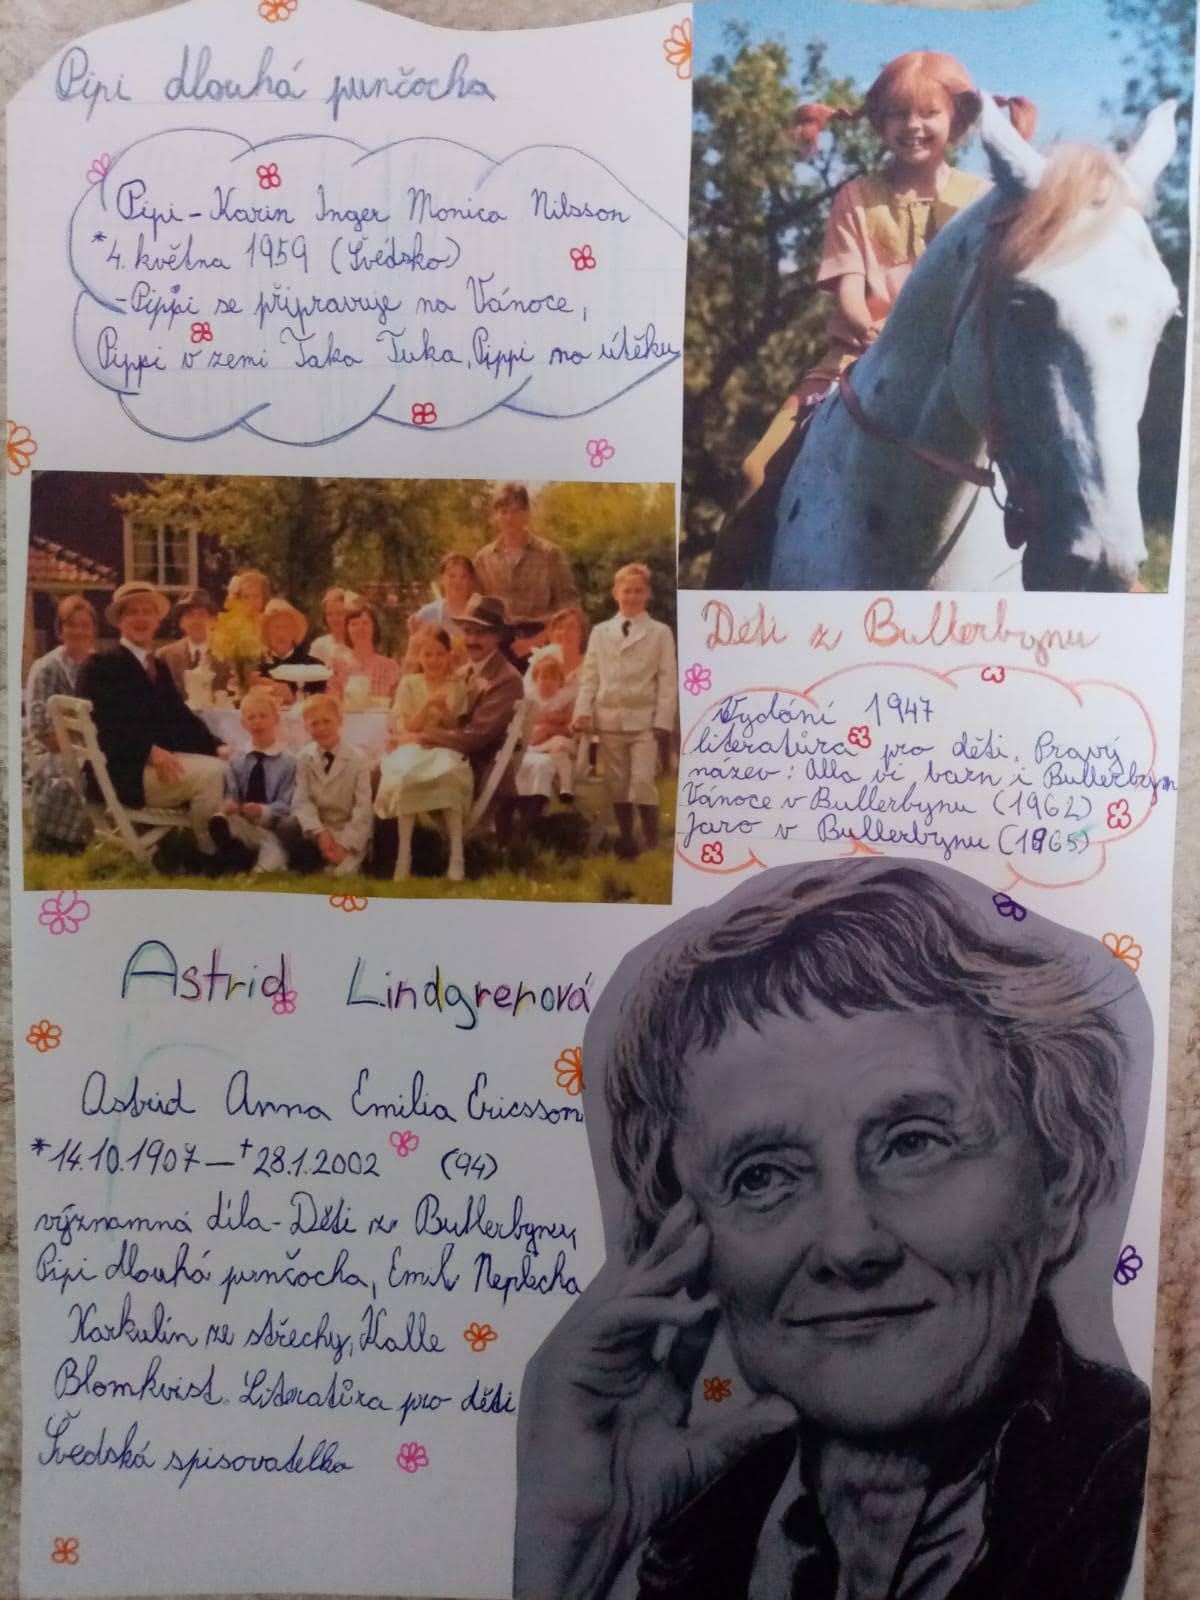 Pipi dlouhá punčocha
Pipi - Karin Inger Monica Nilsson
*4. května 1959 (Švédsko)
- Pippi se připravuje na Vánoce,
Pippi v zemi Taka Tuka, Pippi na útěku
Děti z Bullerbynu
Vydání 1947
literatůra pro děti. Pravý
název: Alla vi barn i Bullerbyn
Vánoce v Bullerbynu (1962)
Jaro v Bullerbynu (1965)
Astrid Lindgrenová
Astrid Anna Emilia Ericsson
*14.10.1907 – †28.1.2002 (94)
významná díla - Děti z Bullerbynu,
Pipi dlouhá punčocha, Emil Neplecha
Karkulín ze střechy, Kalle
Blomkvist. Literatůra pro děti
Švedská spisovatelka